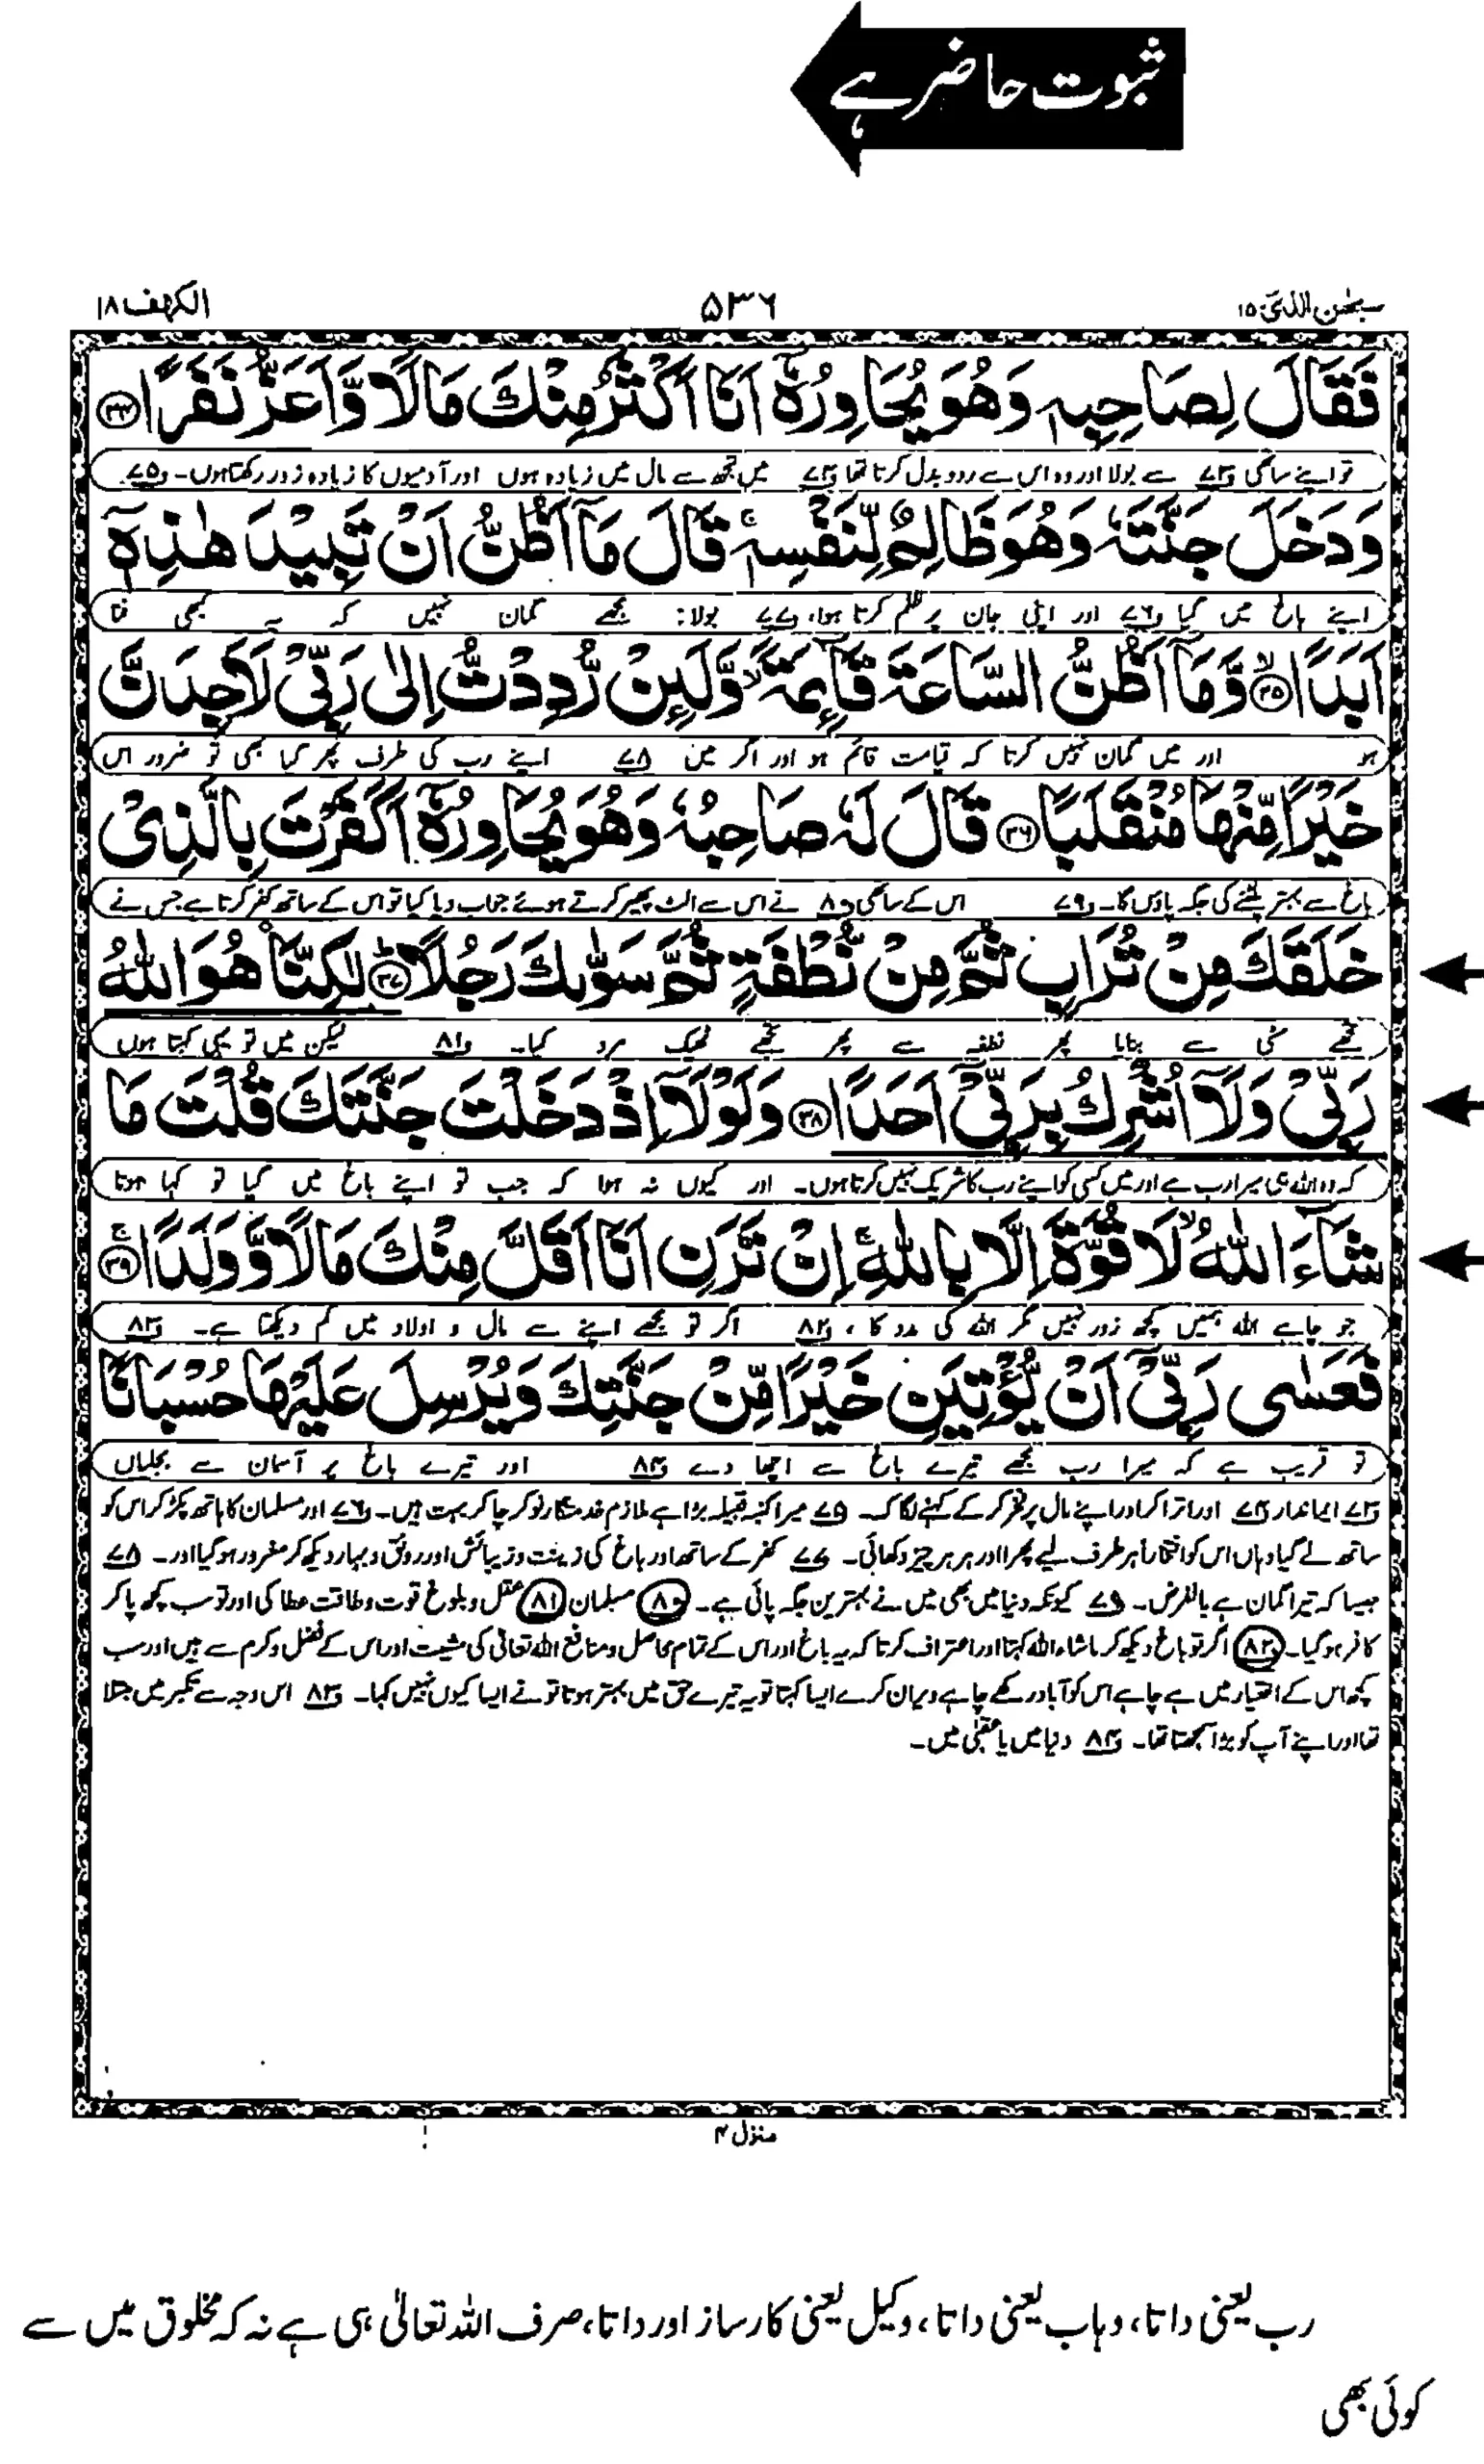 ثبوت حاضر ہے
سبحٰن الذی ۱۵
۵۳۶
الکہف ۱۸
فَقَالَ لِصَاحِبِهٖ وَهُوَ يُحَاوِرُهٗۤ اَنَا اَكْثَرُ مِنْكَ مَالًا وَّاَعَزُّ نَفَرًا ﴿۳۴﴾
تو اپنے ساتھی ف۷۳ سے بولا اور وہ اس سے ردو بدل کرتا تھا ف۷۴ میں تجھ سے مال میں زیادہ ہوں اور آدمیوں کا زیادہ زور رکھتا ہوں۔ ف۷۵
وَدَخَلَ جَنَّتَهٗ وَهُوَ ظَالِمٌ لِّنَفْسِهٖ ۚ قَالَ مَاۤ اَظُنُّ اَنْ تَبِيْدَ هٰذِهٖۤ
اپنے باغ میں گیا ف۷۶ اور اپنی جان پر ظلم کرتا ہوا، ف۷۷ بولا: مجھے گمان نہیں کہ یہ کبھی فنا
اَبَدًا ﴿۳۵﴾ۙ وَّمَاۤ اَظُنُّ السَّاعَةَ قَآئِمَةً ۙ وَّلَئِنْ رُّدِدْتُّ اِلٰى رَبِّىْ لَاَجِدَنَّ
ہو اور میں گمان نہیں کرتا کہ قیامت قائم ہو اور اگر میں ف۷۸ اپنے رب کی طرف پھر گیا بھی تو ضرور اس
خَيْرًا مِّنْهَا مُنْقَلَبًا ﴿۳۶﴾ قَالَ لَهٗ صَاحِبُهٗ وَهُوَ يُحَاوِرُهٗۤ اَكَفَرْتَ بِالَّذِىْ
باغ سے بہتر پلٹنے کی جگہ پاؤں گا۔ ف۷۹ اس کے ساتھی ف۸۰ نے اس سے الٹ پھیر کرتے ہوئے جواب دیا کیا تو اس کے ساتھ کفر کرتا ہے جس نے
خَلَقَكَ مِنْ تُرَابٍ ثُمَّ مِنْ نُّطْفَةٍ ثُمَّ سَوّٰىكَ رَجُلًا ﴿۳۷﴾ؕ لٰكِنَّا۠ هُوَ اللّٰهُ
تجھے مٹی سے بنایا پھر نطفہ سے پھر تجھے ٹھیک مرد کیا۔ ف۸۱ لیکن میں تو یہی کہتا ہوں
رَبِّىْ وَلَاۤ اُشْرِكُ بِرَبِّىْۤ اَحَدًا ﴿۳۸﴾ وَلَوْلَاۤ اِذْ دَخَلْتَ جَنَّتَكَ قُلْتَ مَا
کہ وہ اللہ ہی میرا رب ہے اور میں کسی کو اپنے رب کا شریک نہیں کرتا ہوں۔ اور کیوں نہ ہوا کہ جب تو اپنے باغ میں گیا تو کہا ہوتا
شَآءَ اللّٰهُ ۙ لَا قُوَّةَ اِلَّا بِاللّٰهِ ۚ اِنْ تَرَنِ اَنَا اَقَلَّ مِنْكَ مَالًا وَّوَلَدًا ﴿۳۹﴾ۚ
جو چاہے اللہ ہمیں کچھ زور نہیں مگر اللہ کی مدد کا، ف۸۲ اگر تو مجھے اپنے سے مال و اولاد میں کم دیکھتا ہے۔ ف۸۳
فَعَسٰى رَبِّىْۤ اَنْ يُّؤْتِيَنِ خَيْرًا مِّنْ جَنَّتِكَ وَيُرْسِلَ عَلَيْهَا حُسْبَانًا
تو قریب ہے کہ میرا رب مجھے تیرے باغ سے اچھا دے ف۸۴ اور تیرے باغ پر آسمان سے بجلیاں
ف۷۳ ایماندار ف۷۴ اور اترا کر اور اپنے مال پر فخر کر کے کہنے لگا کہ۔ ف۷۵ میرا کنبہ قبیلہ بڑا ہے ملازم خدمتگار نوکر چاکر بہت ہیں۔ ف۷۶ اور مسلمان کا ہاتھ پکڑ کر اس کو
ساتھ لے گیا وہاں اس کو افتخاراً ہر طرف لیے پھرا اور ہر ہر چیز دکھائی۔ ف۷۷ کفر کے ساتھ اور باغ کی زینت و زیبائش اور رونق و بہار دیکھ کر مغرور ہو گیا اور۔ ف۷۸
جیسا کہ تیرا گمان ہے بالفرض۔ ف۷۹ کیونکہ دنیا میں بھی میں نے بہترین جگہ پائی ہے۔ ف۸۰ مسلمان ف۸۱ عقل و بلوغ قوت و طاقت عطا کی اور تو سب کچھ پا کر
کافر ہو گیا۔ ف۸۲ اگر تو باغ دیکھ کر ماشاء اللہ کہتا اور اعتراف کرتا کہ یہ باغ اور اس کے تمام محاصل و منافع اللہ تعالیٰ کی مشیت اور اس کے فضل و کرم سے ہیں اور سب
کچھ اس کے اختیار میں ہے چاہے اس کو آباد رکھے چاہے ویران کرے ایسا کہتا تو یہ تیرے حق میں بہتر ہوتا تو نے ایسا کیوں نہیں کہا۔ ف۸۳ اس وجہ سے تکبر میں مبتلا
تھا اور اپنے آپ کو بڑا سمجھتا تھا۔ ف۸۴ دنیا میں یا عقبٰی میں۔
منزل ۴
رب یعنی داتا، وہاب یعنی داتا، وکیل یعنی کارساز اور داتا، صرف اللہ تعالیٰ ہی ہے نہ کہ مخلوق میں سے
کوئی بھی